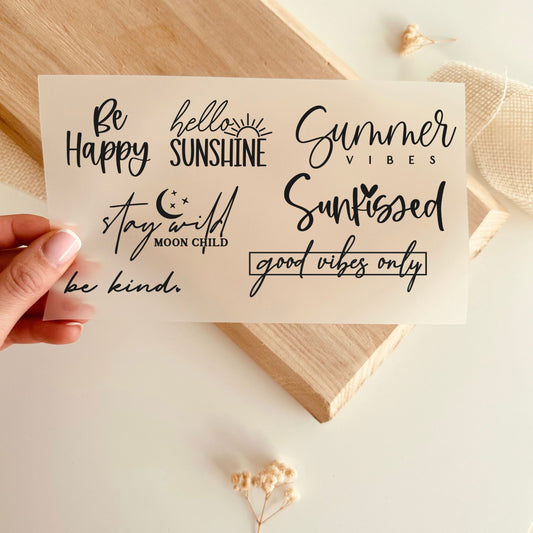 Be
Happy
hello
SUNSHINE
Summer
VIBES
stay wild
MOON CHILD
Sunkissed
good vibes only
be kind.